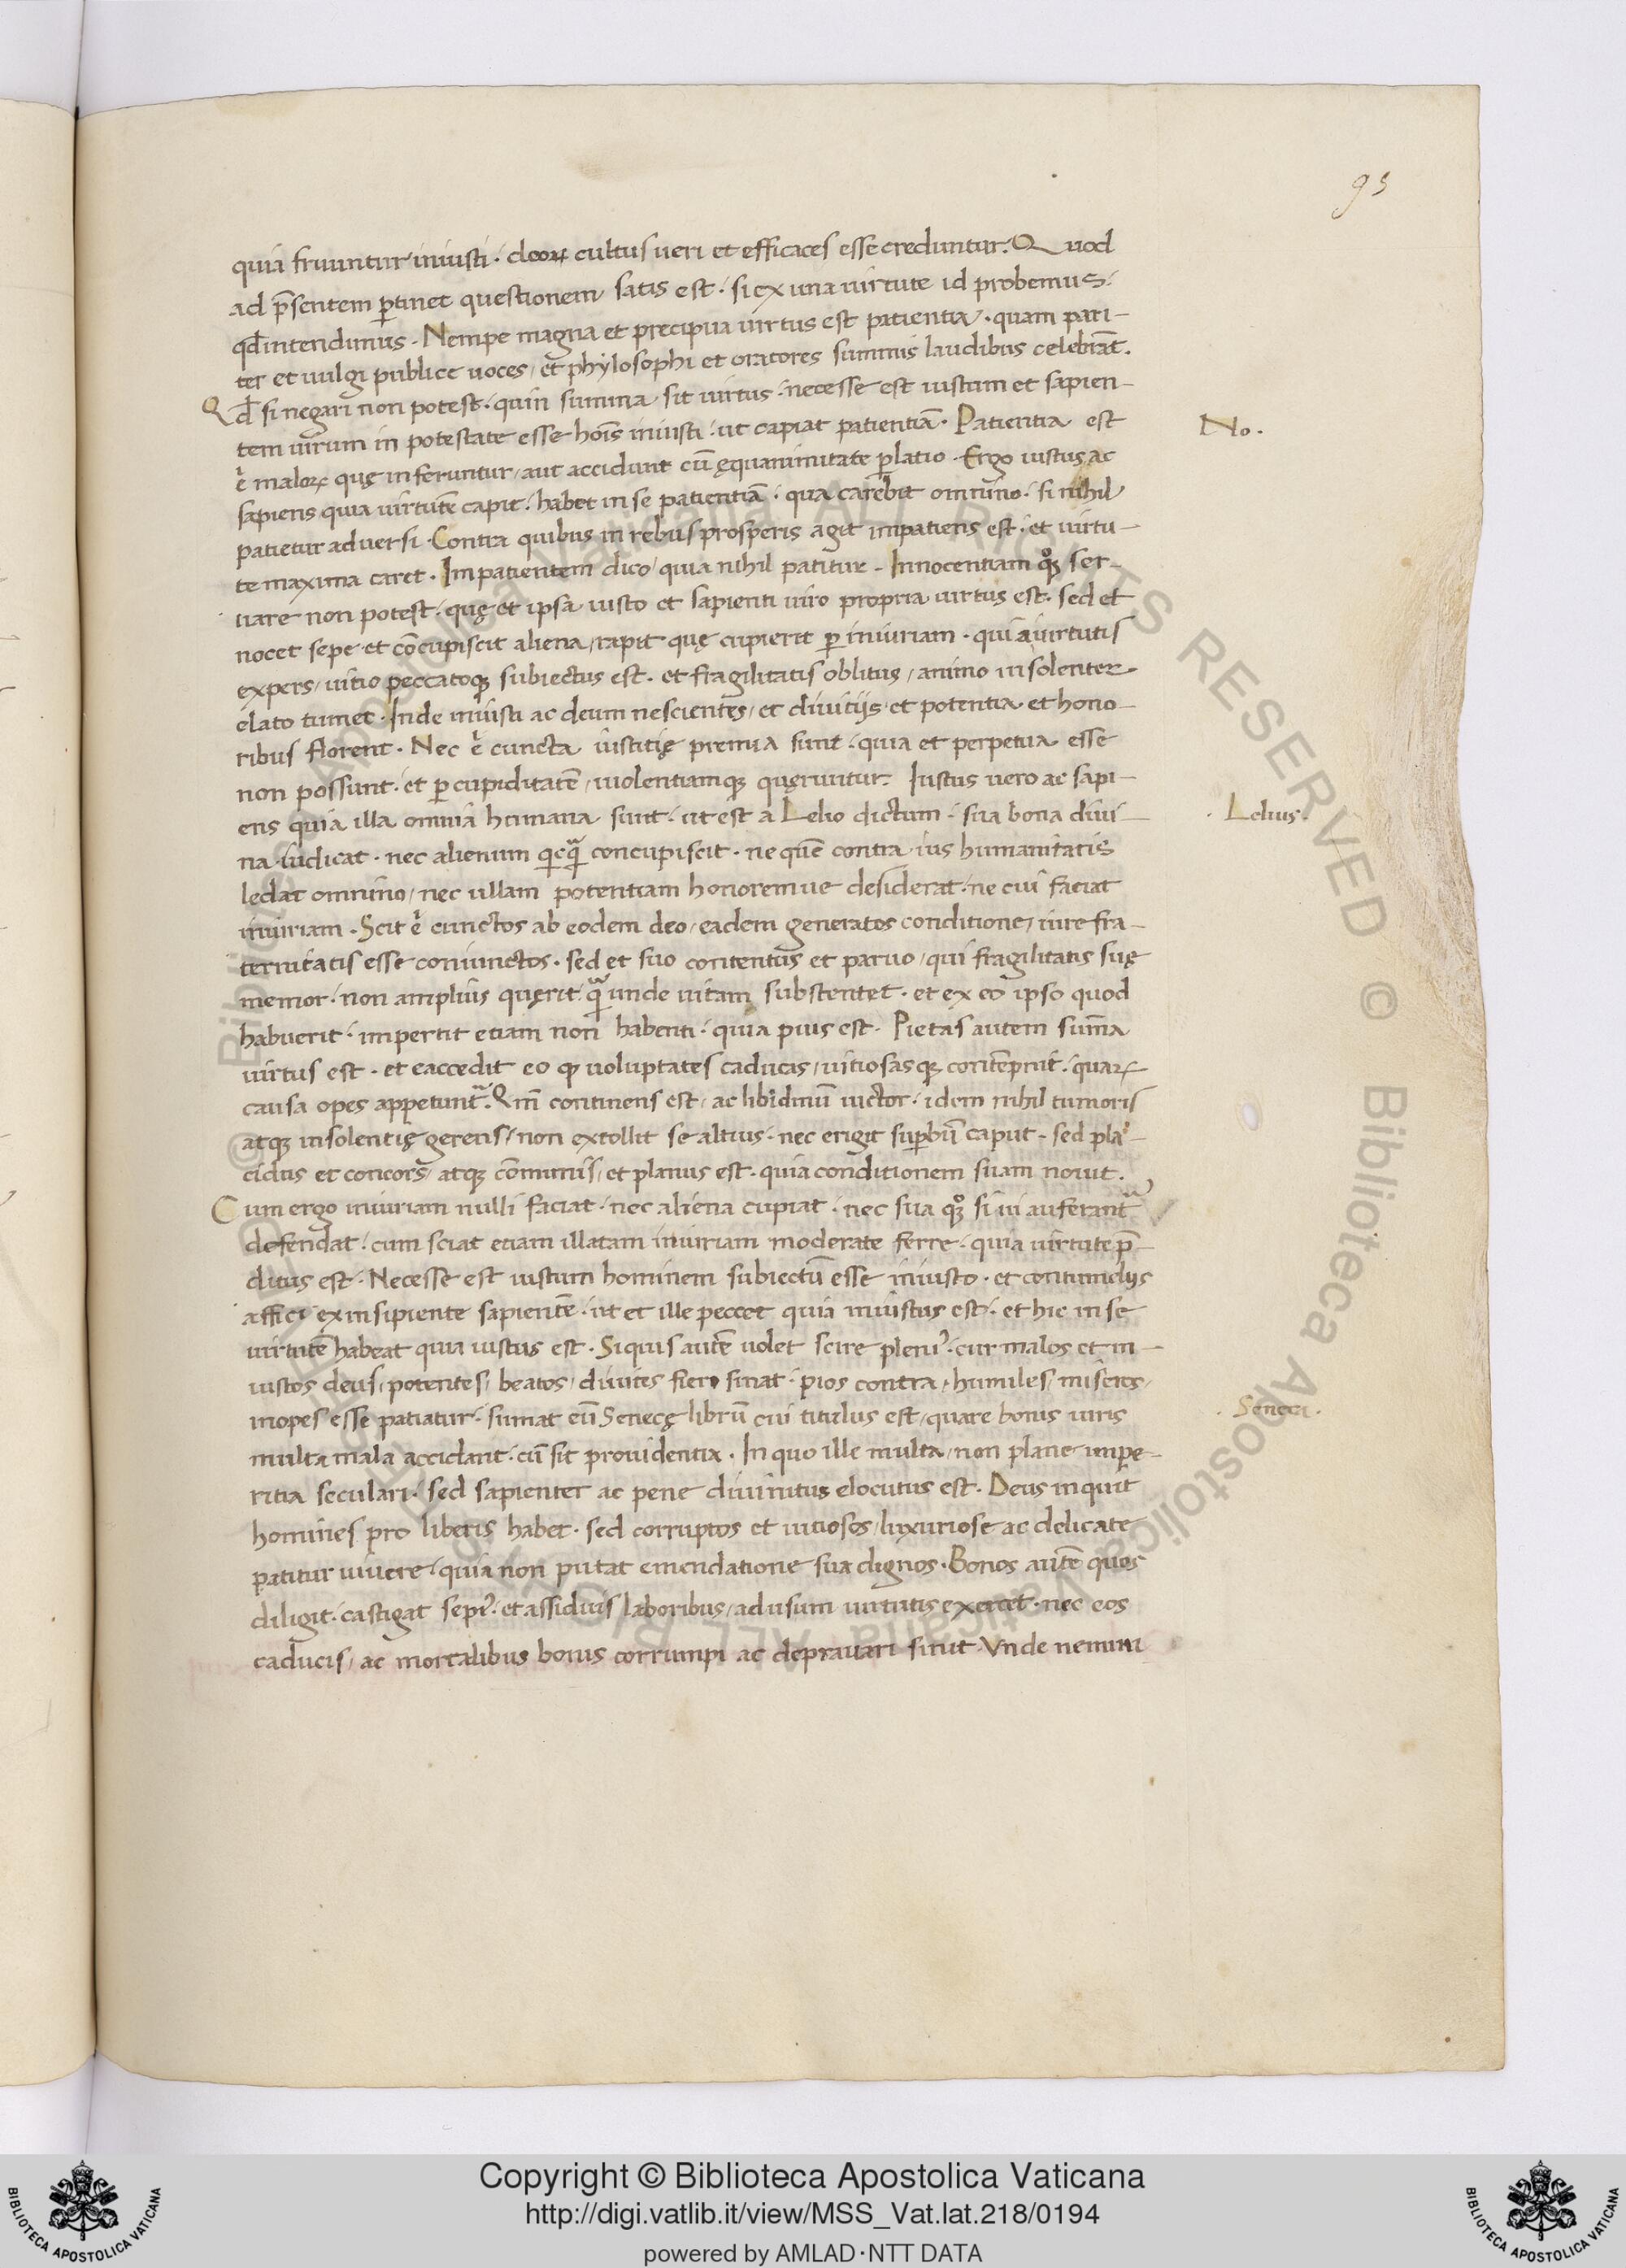 95
quia fruuntur iniusti · deoꝝ cultus ueri et efficaces esse creduntur. Quod
ad p̄sentem ꝑtinet questionem satis est · si ex una uirtute id probemus ·
qđ intendimus · Nempe magna et precipua uirtus est patientia · quam pari-
ter et uulgi publice uoces / et phylosophi et oratores summis laudibus celebrāt.
Qđ si negari non potest · quin summa sit uirtus · necesse est iustum et sapien-
tem uirum in potestate esse hoīs iniusti · ut capiat patientiā · Patientia est
No.
.n. maloꝝ quę inferuntur / aut accidunt cū ęquanimitate ꝑlatio · Ergo iustus ac
sapiens quia uirtutē capit · habet in se patientiā · qua carebit omnino · si nihil
patietur aduersi · Contra quibus in rebus prosperis agit impatiens est · et uirtu-
te maxima caret · Impatientem dico / quia nihil patitur · Innocentiam qͦꝫ ser-
uare non potest · quę et ipsa iusto et sapienti uiro propria uirtus est · sed et
nocet sepe et cōcupiscit aliena / rapit quę cupierit ꝑ iniuriam · quia uirtutis
expers / uitio peccatoqꝫ subiectus est · et fragilitatis oblitus / animo insolenter
elato tumet · Inde iniusti ac deum nescientes / et diuitijs et potentia et hono-
ribus florent · Nec .n. cuncta iustitię premia sunt · quia et perpetua esse
non possunt · et ꝑ cupiditatē / uiolentiamqꝫ quęruntur. Iustus uero ac sapi-
ens quia illa omnia humana sunt · ut est a Lelio dictum · sua bona diui-
· Lelius ·
na iudicat · nec alienum qͥcqͣ concupiscit · ne quē contra ius humanitatis
ledat omnino / nec ullam potentiam honoremue desiderat · ne cui faciat
iniuriam · Scit .n. cunctos ab eodem deo / eadem generatos conditione / iure fra-
ternitatis esse coniunctos · sed et suo contentus et paruo / qui fragilitatis suę
memor · non amplius quęrit qͣ unde uitam substentet · et ex eo ipso quod
habuerit · impertit etiam non habenti · quia pius est · Pietas autem suma
uirtus est · et eaccedit eo ꝙ uoluptates caducas / uitiosasqꝫ contēpnit · quaꝝ
causa opes appetuntͣ. Qm̄ continens est / ac libidinū uictor · idem nihil tumoris
atqꝫ insolentię gerens / non extollit se altius · nec erigit suꝑbū caput · sed pla-
cidus et concors / atqꝫ cōmunis / et planus est · quia conditionem suam nouit.
Cum ergo iniuriam nulli faciat · nec aliena cupiat · nec sua qͦꝫ si ui auferantͣ
defendat · cum sciat etiam illatam iniuriam moderate ferre · quia uirtute p̄-
ditus est · Necesse est iustum hominem subiectū esse iniusto · et contumelijs
affici ex insipiente sapientē · ut et ille peccet quia iniustus est · et hic in se
uirtutē habeat quia iustus est · Siquis autē uolet scire pleniꝰ · cur malos et in-
iustos deus / potentes / beatos / diuites fieri sinat · pios contra / humiles / miseros /
inopes esse patiatur · sumat eū Senecę librū cui titulus est / quare bonis uiris
· Seneca ·
multa mala accidant · cū sit prouidentia · In quo ille multa / non plane impe-
ritia seculari · sed sapienter ac pene diuinitus elocutus est · Deus inquit
homines pro liberis habet · sed corruptos et uitiosos / luxuriose ac delicate
patitur uiuere · quia non putat emendatione sua dignos · Bonos autē quos
diligit · castigat sepiꝰ · et assiduis laboribus / ad usum uirtutis exercet · nec eos
caducis / ac mortalibus bonis corrumpi ac deprauari sinit · Vnde nemini
Copyright © Biblioteca Apostolica Vaticana
http://digi.vatlib.it/view/MSS_Vat.lat.218/0194
powered by AMLAD·NTT DATA